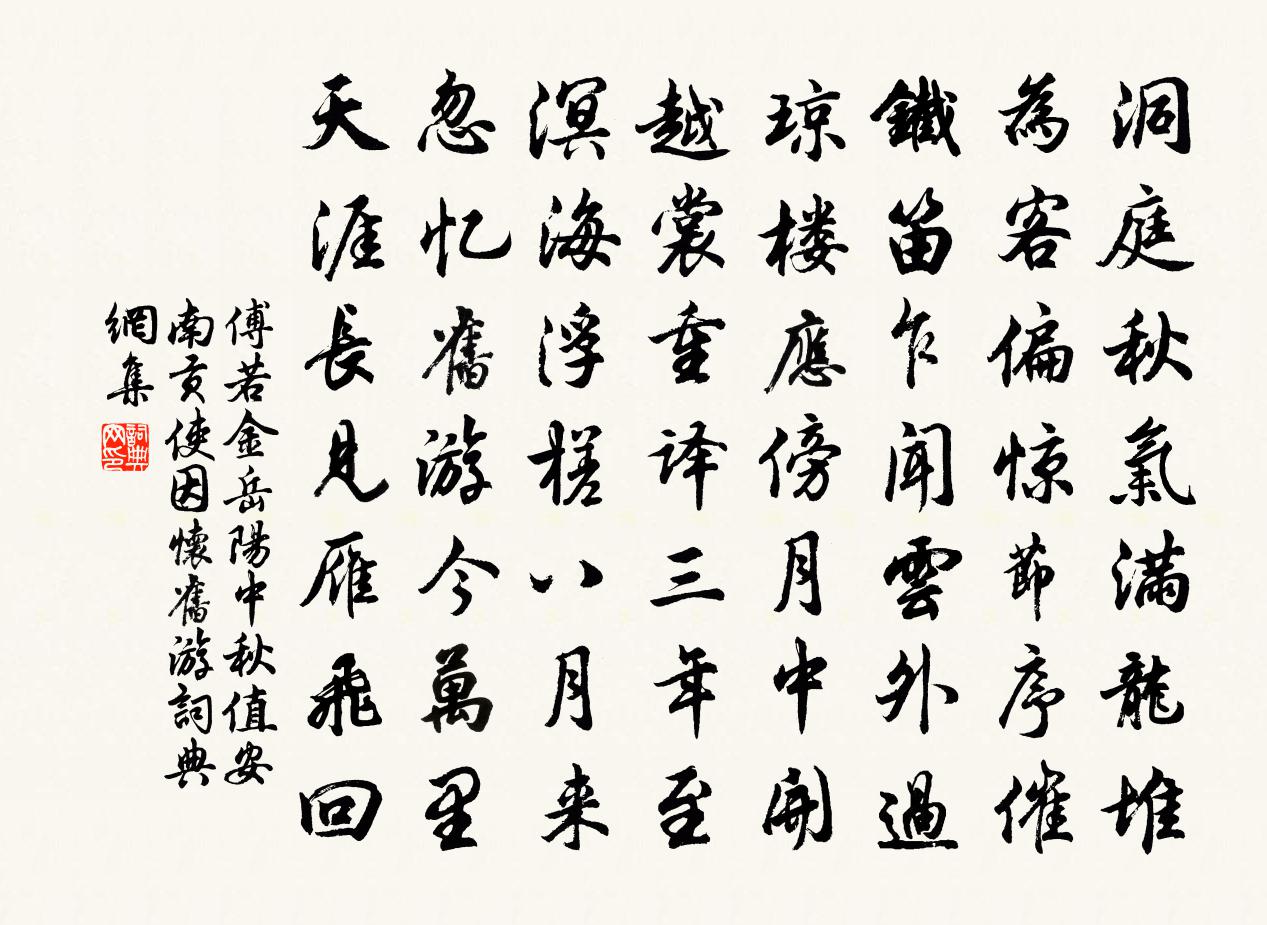 洞庭秋氣满龍堆
為客偏惊節序催
鐵笛乍聞雲外過
琼楼應傍月中開
越裳重译三年至
溟海浮槎八月来
忽忆舊游今萬里
天涯長見雁飛回
傅若金岳陽中秋值安
南貢使因懷舊游詞典
網集
詞典网印